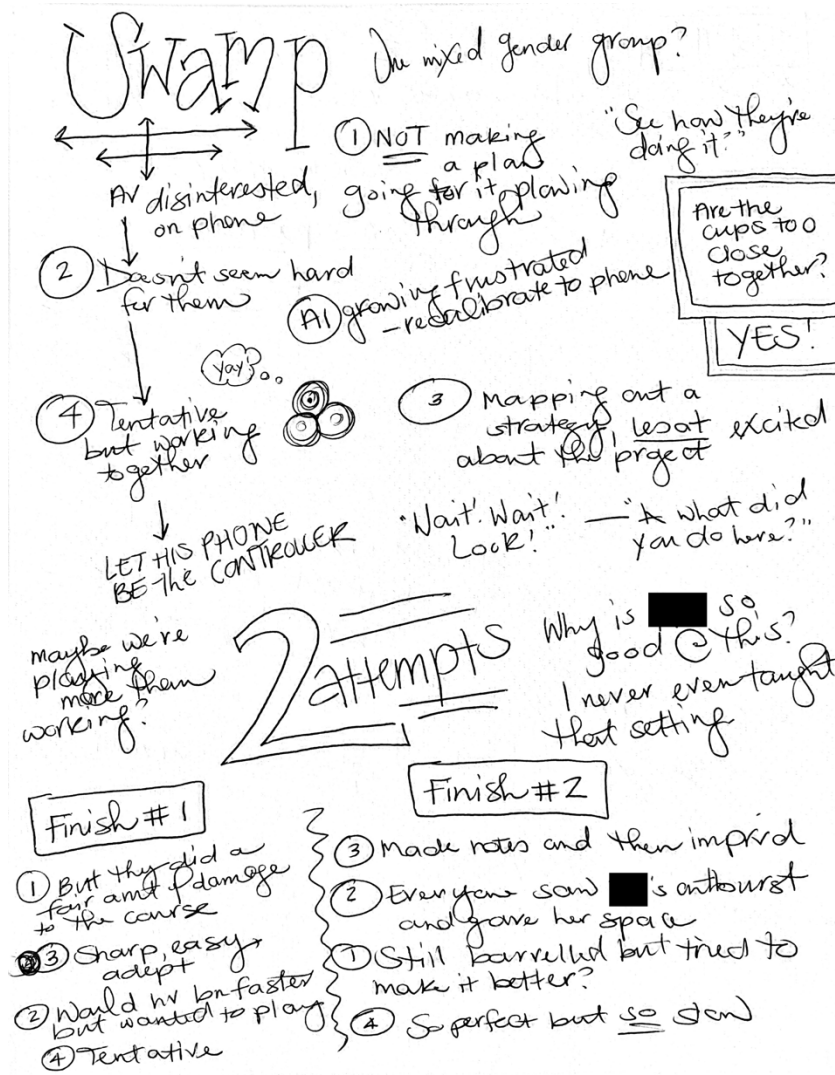 Swamp
One mixed gender group?
① NOT making
a plan
going for it, plowing
through
"See how they're
doing it?"
Are the
cups too
close
together?
YES!
AV disinterested,
on phone
② Doesn't seem hard
for them
AI growing frustrated
- recalibrate to phone
yay!
④ Tentative
but working
together
③ Mapping out a
strategy, excited
about the prgect
LET HIS PHONE
BE THE CONTROLLER
"Wait! Wait!
Look!" — "A what did
you do here?"
maybe we're
playing
more them
working?
2 attempts
Why is so
good @ this?
I never even taught
that setting
Finish #1
① But they did a
fair amt of damage
to the course
③ Sharp, easy,
adept
② Would hv bn faster
but wanted to play
④ Tentative
Finish #2
③ Made notes and then imprvd
② Everyone saw 's outburst
and gave her space
① Still barrelled but tried to
make it better?
④ So perfect but so slow